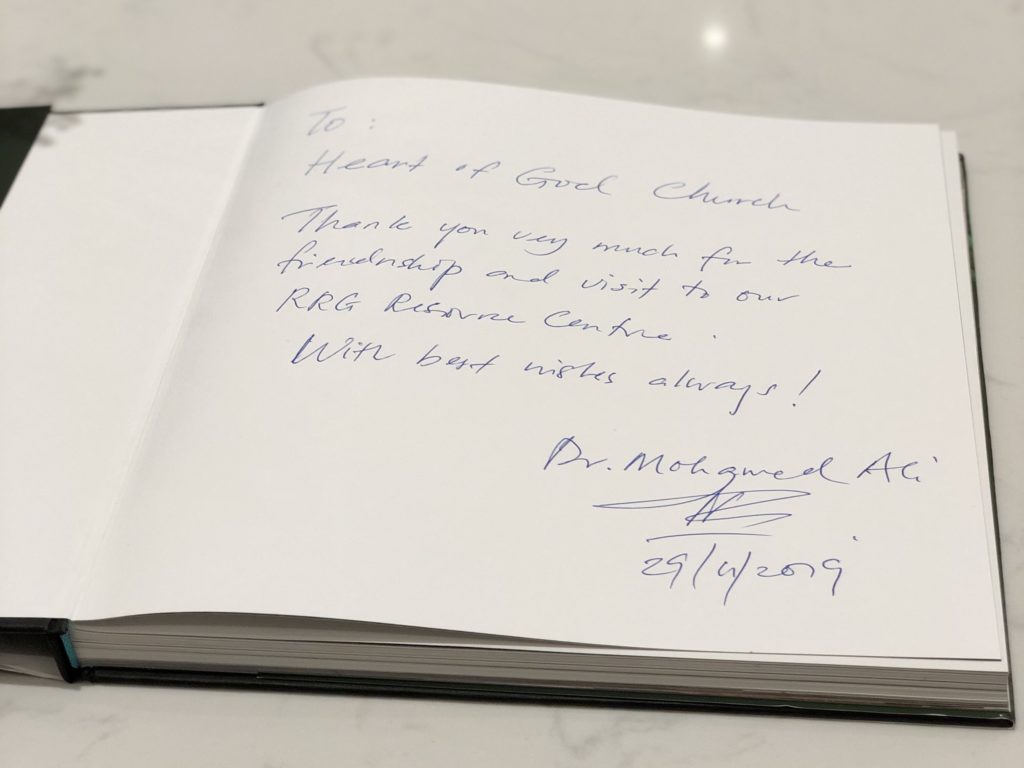 To :
Heart of God Church
Thank you very much for the
friendship and visit to our
RRG Resource Centre .
With best wishes always!
Dr. Mohamed Ali
29/11/2019